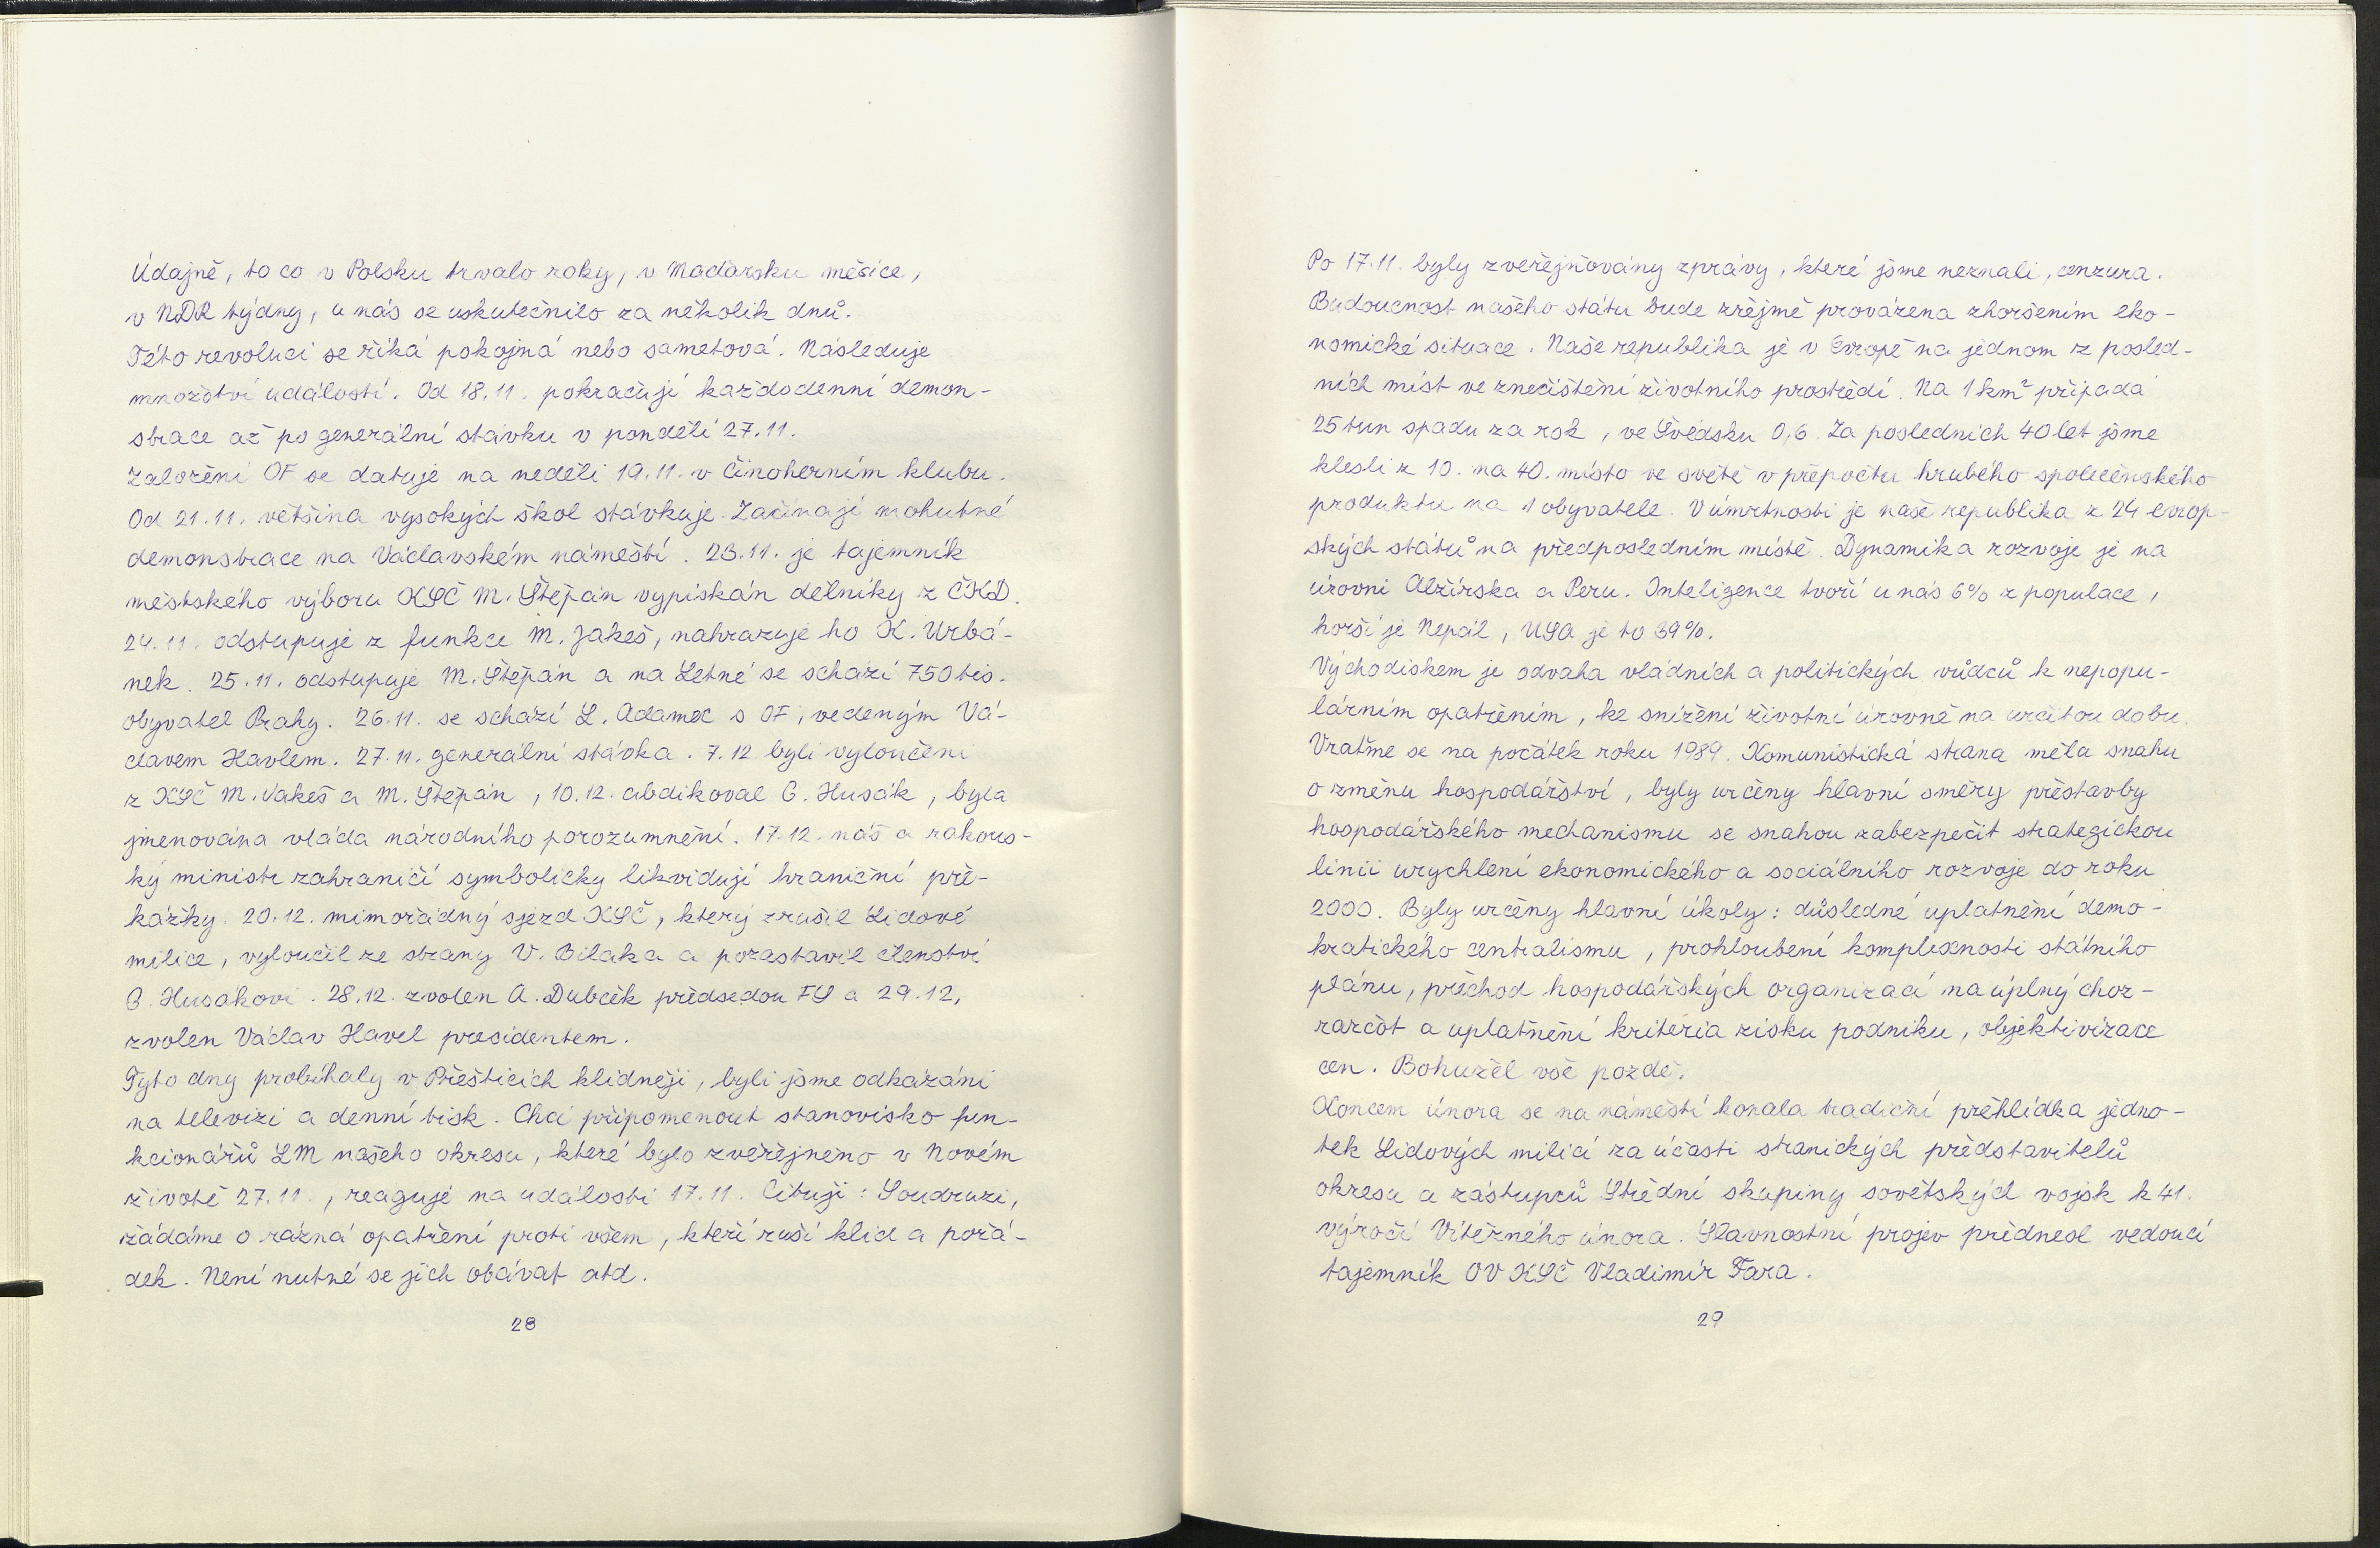 Údajně, to co v Polsku trvalo roky, v Maďarsku měsíce,
v NDR týdny, u nás se uskutečnilo za několik dnů.
Této revoluci se říká pokojná nebo sametová. Následuje
množství událostí. Od 18.11. pokračují každodenní demon-
strace až po generální stávku v pondělí 27.11.
Založení OF se datuje na neděli 19.11. v Činoherním klubu.
Od 21.11. většina vysokých škol stávkuje. Začínají mohutné
demonstrace na Václavském náměstí. 23.11. je tajemník
městského výboru KSČ M. Štěpán vypískán dělníky z ČKD.
24.11. odstupuje z funkce M. Jakeš, nahrazuje ho K. Urbá-
nek. 25.11. odstupuje M. Štěpán a na Letné se schází 750 tis.
obyvatel Prahy. 26.11. se schází L. Adamec s OF, vedeným Vá-
clavem Havlem. 27.11. generální stávka. 7.12 byli vyloučeni
z KSČ M. Jakeš a M. Štěpán, 10.12. abdikoval G. Husák, byla
jmenována vláda národního porozumnění. 17.12. náš a rakous-
ký ministr zahraničí symbolicky likvidují hraniční pře-
kážky. 20.12. mimořádný sjezd KSČ, který zrušil Lidové
milice, vyloučil ze strany V. Bilaka a pozastavil členství
G. Husákovi. 28.12. zvolen A. Dubček předsedou FS a 29.12.
zvolen Václav Havel presidentem.
Tyto dny probíhaly v Přešticích klidněji, byli jsme odkázáni
na televizi a denní tisk. Chci připomenout stanovisko fun-
kcionářů LM našeho okresu, které bylo zveřejněno v Novém
životě 27.11., reaguje na události 17.11. Cituji: Soudruzi,
žádáme o rázná opatření proti všem, kteří ruší klid a pořá-
dek. Není nutné se jich obávat atd.
28
Po 17.11. byly zveřejňovány zprávy, které jsme neznali, cenzura.
Budoucnost našeho státu bude zřejmě provázena zhoršením eko-
nomické situace. Naše republika je v Evropě na jednom z posled-
ních míst ve znečištění životního prostředí. Na 1 km² připadá
25 tun spadu za rok, ve Švédsku 0,6. Za posledních 40 let jsme
klesli z 10. na 40. místo ve světě v přepočtu hrubého společenského
produktu na 1 obyvatele. V úmrtnosti je naše republika z 24 evrop-
ských států na předposledním místě. Dynamika rozvoje je na
úrovni Alžírska a Peru. Inteligence tvoří u nás 6% z populace,
horší je Nepál, USA je to 39%.
Východiskem je odvaha vládních a politických vůdců k nepopu-
lárním opatřením, ke snížení životní úrovně na určitou dobu.
Vraťme se na počátek roku 1989. Komunistická strana měla snahu
o změnu hospodářství, byly určeny hlavní směry přestavby
hospodářského mechanismu se snahou zabezpečit strategickou
linii urychlení ekonomického a sociálního rozvoje do roku
2000. Byly určeny hlavní úkoly: důsledné uplatnění demo-
kratického centralismu, prohloubení komplexnosti státního
plánu, přechod hospodářských organizací na úplný choz-
razčot a uplatnění kritéria zisku podniku, objektivizace
cen. Bohužel vše pozdě.
Koncem února se na náměstí konala tradiční přehlídka jedno-
tek Lidových milicí za účasti stranických představitelů
okresu a zástupců Střední skupiny sovětských vojsk k 41.
výročí Vítězného února. Slavnostní projev přednesl vedoucí
tajemník OV KSČ Vladimír Fara.
29